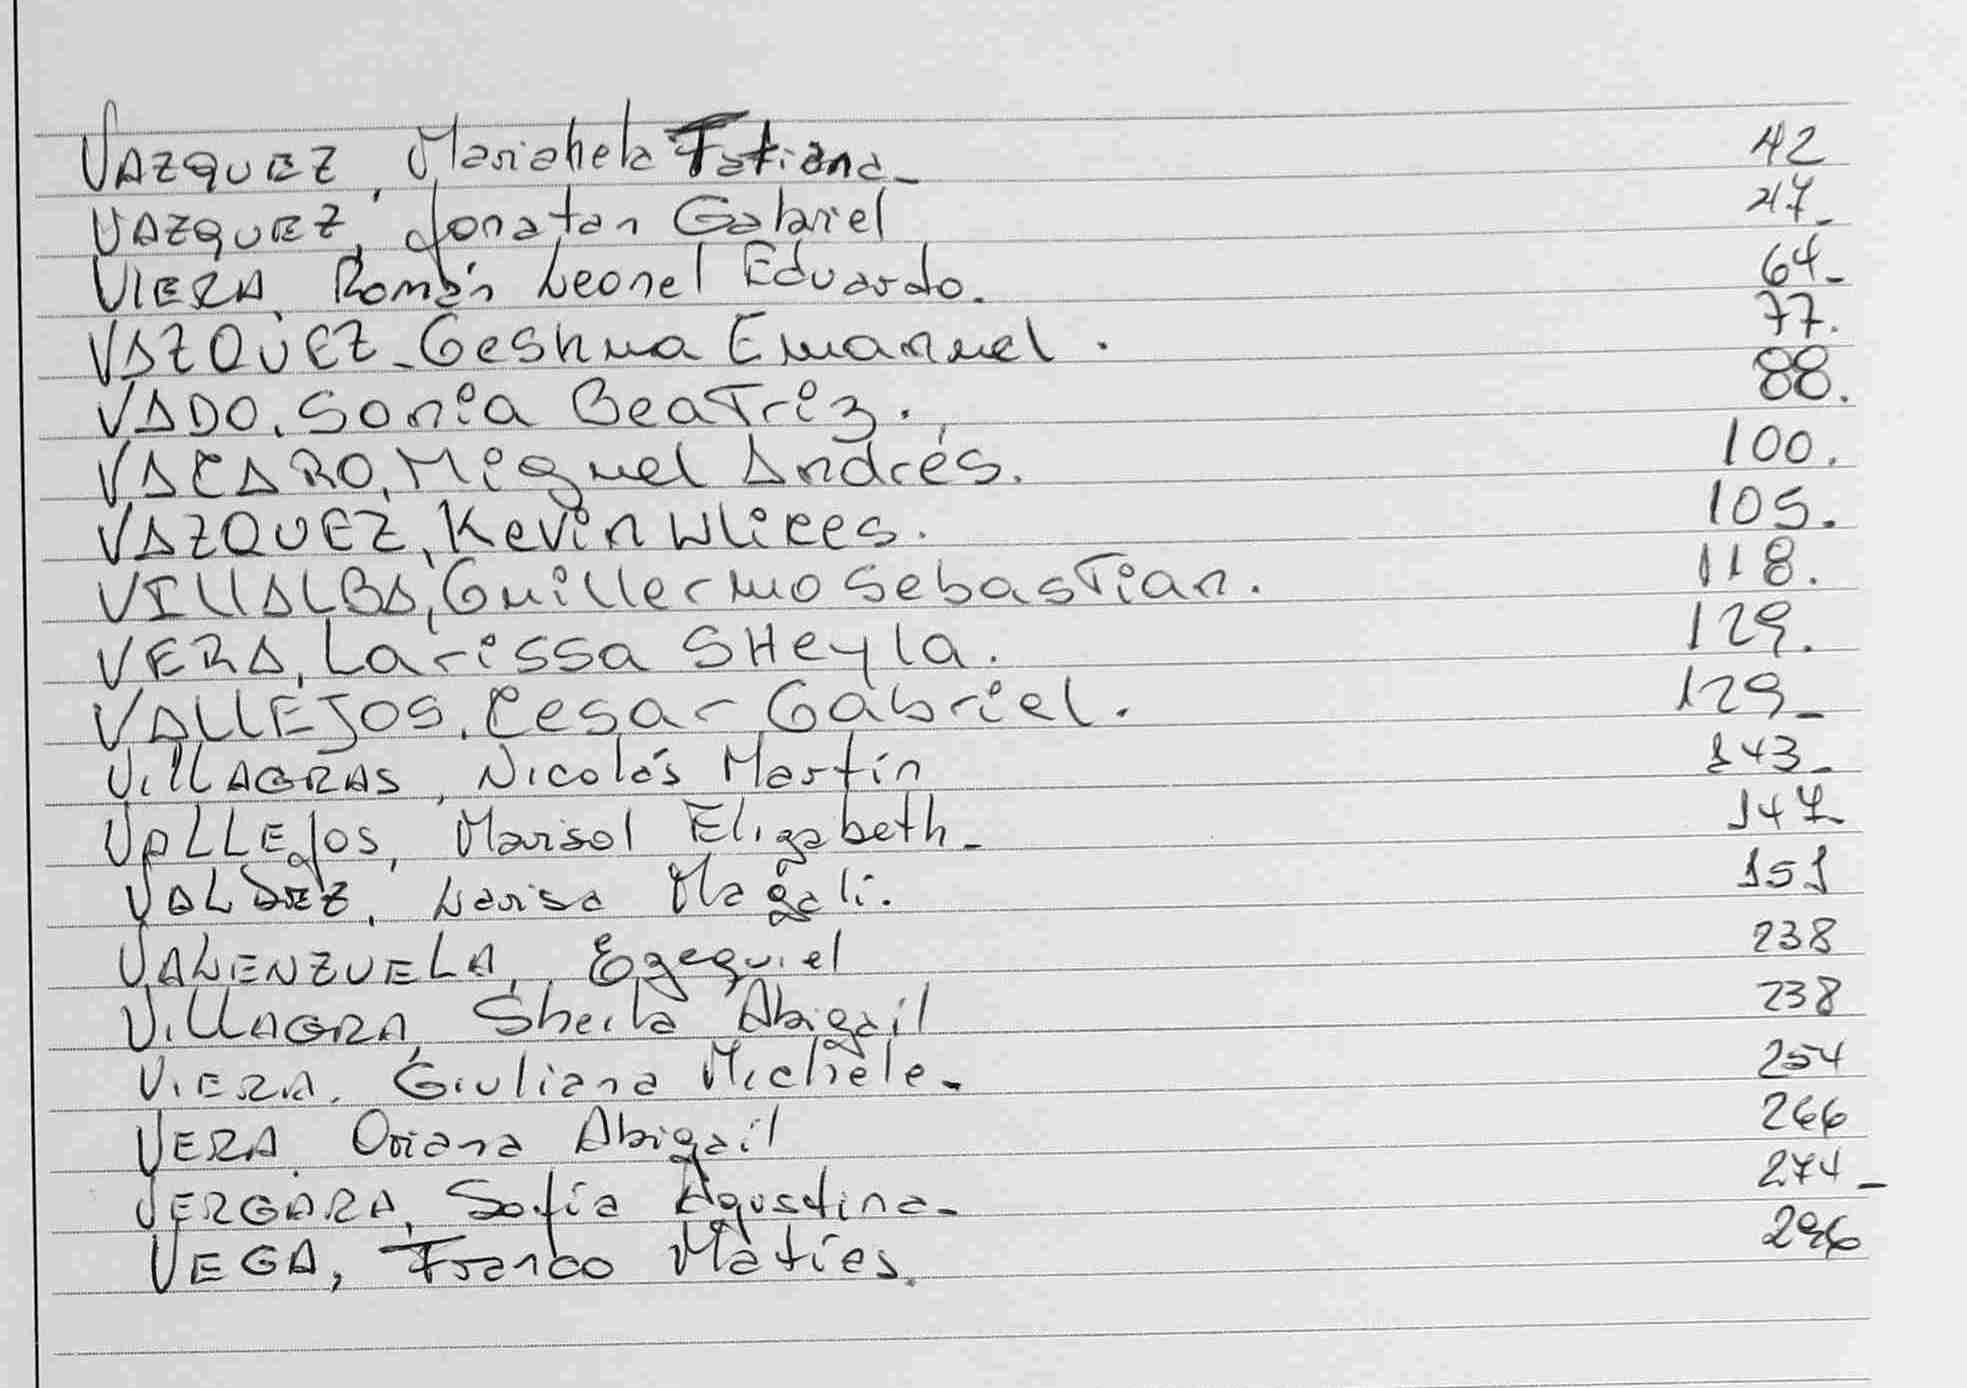 VAZQUEZ, Marianela Tatiana_ 42
VAZQUEZ, Jonatan Gabriel 47_
VIERA, Román Leonel Eduardo. 64_
VAZQUEZ_Geshua Emanuel. 77.
VADO, Sonia Beatriz. 88.
VACARO, Miguel Andrés. 100.
VAZQUEZ, Kevin Ulices. 105.
VILLALBA, Guillermo Sebastian. 118.
VERA, Larissa SHeyla. 129.
VALLEJOS, Cesar Gabriel. 129_
VILLAGRAS, Nicolás Martín 143_
VALLEJOS, Marisol Elizabeth_ 147_
VALDEZ, Larisa Magali. 151
VALENZUELA, Ezequiel 238
VILLAGRA, Sheila Abigail 238
VIERA, Giuliana Michele_ 254
VERA, Oriana Abigail 266
VERGARA, Sofía Agustina_ 274_
VEGA, Franco Matías. 296